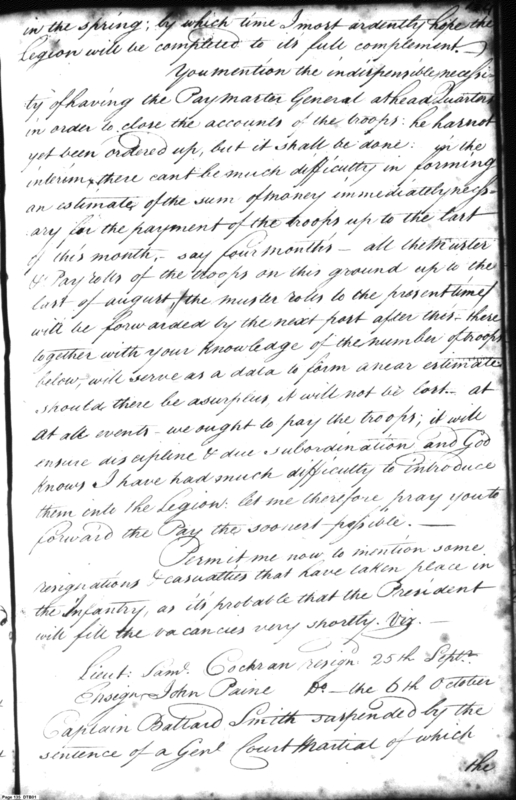 in the spring; by which time I most ardently hope the
Legion will be completed to its full complement —
You mention the indispensible necessi-
ty of having the Pay Master General at head Quarters
in order to close the accounts of the troops: he has not
yet been ordered up, but it shall be done: in the
interim, there cant be much difficulty in forming
an estimate of the sum of money immediately necess-
ary for the payment of the troops up to the last
of this month, — say four months — all the Muster
& Pay rolls of the troops on this ground up to the
last of august (the muster rolls to the present time)
will be forwarded by the next post after this — these
together with your knowledge of the number of troops
below, will serve as a data to form a near estimate
should there be a surplus it will not be lost — at
at all events — we ought to pay the troops; it will
ensure discipline & due subordination and God
knows I have had much difficulty to introduce
them into the Legion: let me therefore pray you to
forward the Pay the soonest possible. —
Permit me now to mention some
resignations & casualties that have taken place in
the Infantry, as its probable that the President
will fill the vacancies very shortly. Viz. —
Lieut: Saml. Cochran resign'd 25th Septr.
Ensign John Paine Do — the 6th October
Captain Ballard Smith suspended by the
sentence of a Genl Court Martial of which
the
Page 139 DTB01